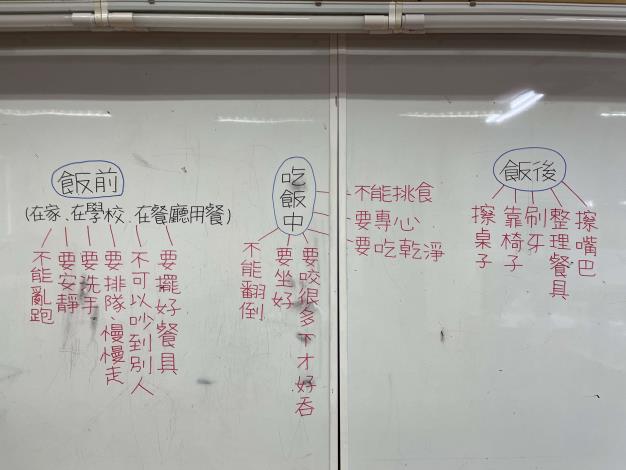 飯前
(在家、在學校、在餐廳用餐)
不能亂跑
要安靜
要洗手
要排隊、慢慢走
不可以吵到別人
要擺好餐具
吃飯中
不能翻倒
要坐好
要咬很多下才好吞
不能挑食
要專心
要吃乾淨
飯後
擦桌子
靠椅子
刷牙
整理餐具
擦嘴巴